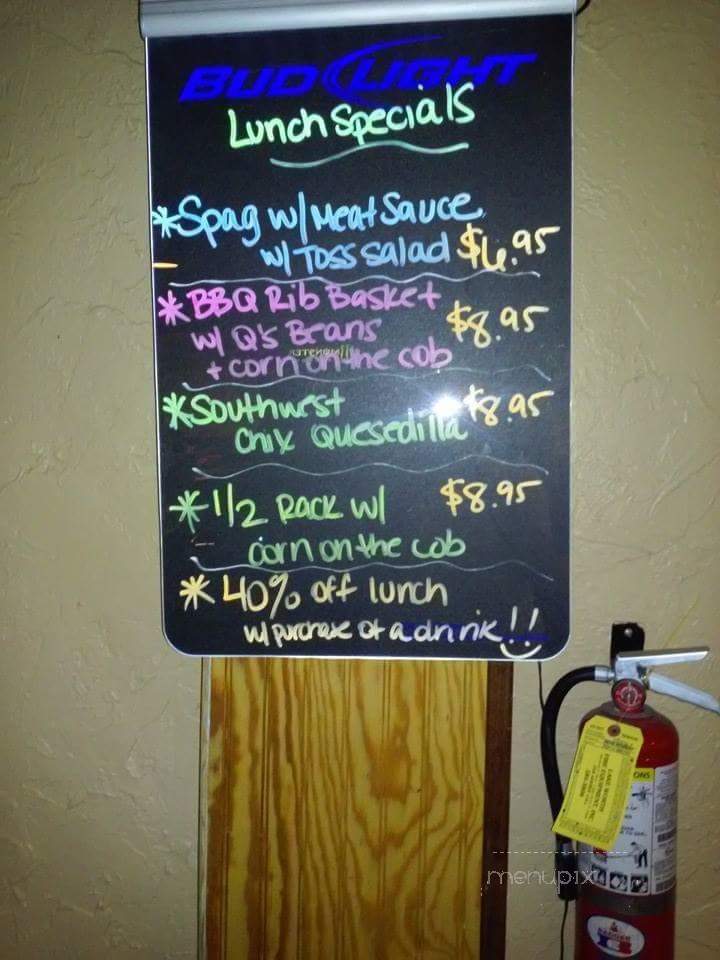 BUD LIGHT
Lunch Specials
*Spag w/ Meat Sauce
w/ Toss Salad $6.95
*BBQ Rib Basket
w/ Q's Beans $8.95
+ corn on the cob
*Southwest $8.95
Chix Quesedilla
*1/2 Rack w/ $8.95
corn on the cob
*40% off lunch
w/ purchase of a drink!!
menupix